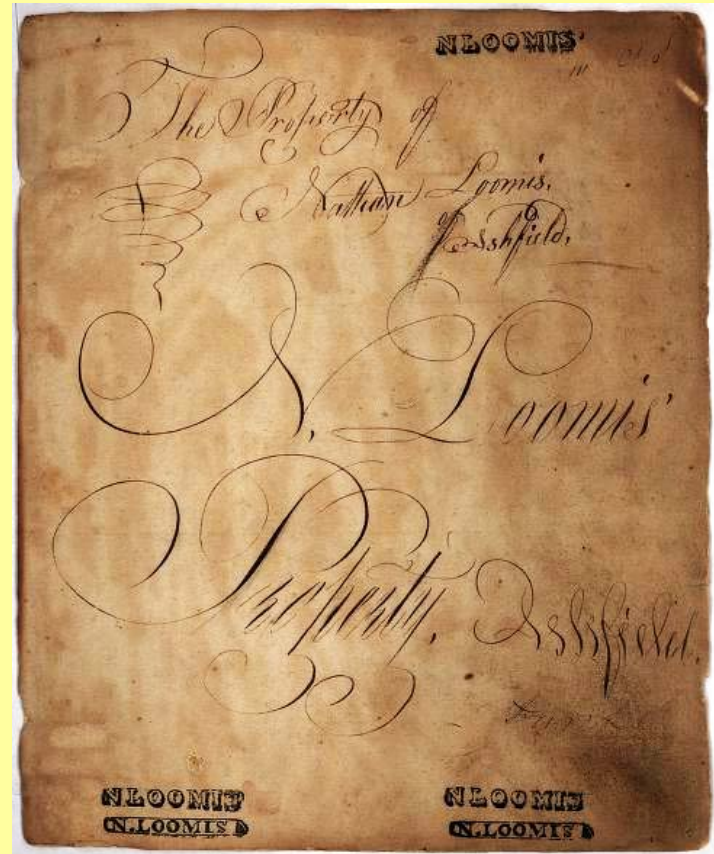 N LOOMIS
The Property of
Nathan Loomis.
of Ashfield,
N. Loomis'
Property. Ashfield.
N LOOMIS N LOOMIS
N. LOOMIS N. LOOMIS